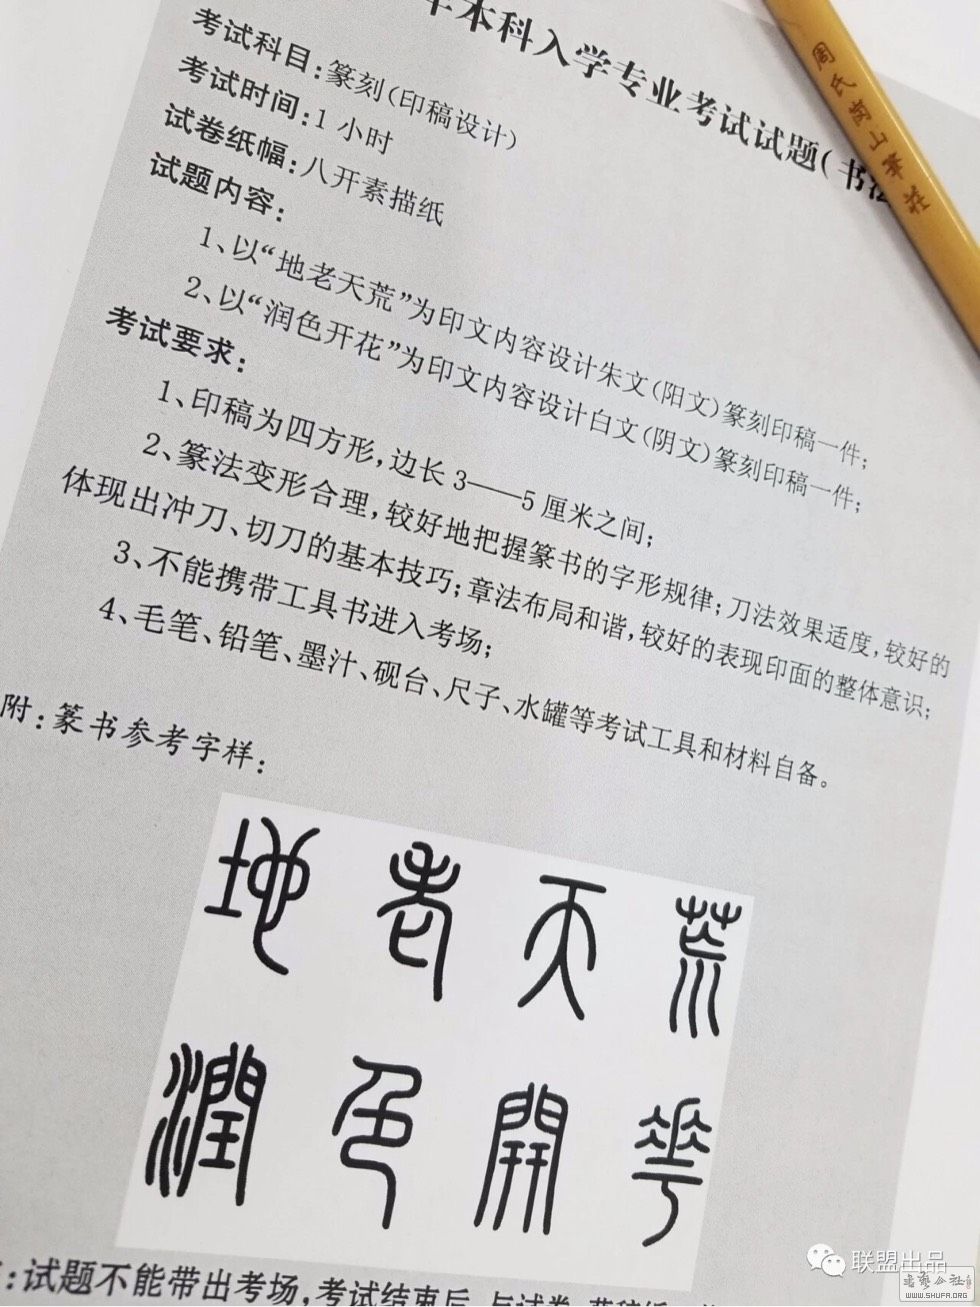 年本科入学专业考试试题(书法
考试科目:篆刻(印稿设计)
考试时间:1小时
试卷纸幅:八开素描纸
试题内容:
1、以“地老天荒”为印文内容设计朱文(阳文)篆刻印稿一件;
2、以“润色开花”为印文内容设计白文(阴文)篆刻印稿一件;
考试要求:
1、印稿为四方形,边长3——5厘米之间;
2、篆法变形合理,较好地把握篆书的字形规律;刀法效果适度,较好的
体现出冲刀、切刀的基本技巧;章法布局和谐,较好的表现印面的整体意识;
3、不能携带工具书进入考场;
4、毛笔、铅笔、墨汁、砚台、尺子、水罐等考试工具和材料自备。
附:篆书参考字样:
地老天荒
潤色開花
:试题不能带出考场,考试结束后,与试卷、草稿纸
周氏岗山筆莊
联盟出品
書藝公社
WWW.SHUFA.ORG